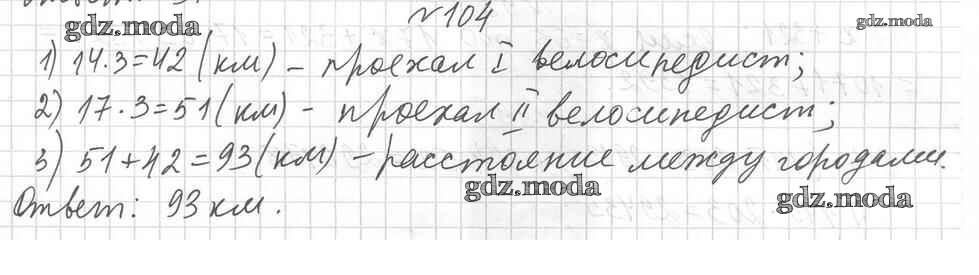 №104
gdz.moda
gdz.moda
1) 14·3=42 (км) – проехал I велосипедист;
2) 17·3=51 (км) – проехал II велосипедист;
3) 51+42=93 (км) – расстояние между городами.
gdz.moda
Ответ: 93 км.
gdz.moda